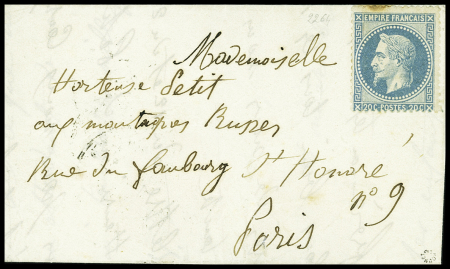 EMPIRE FRANÇAIS
20C POSTES 20C
Mademoiselle
Hortense Petit
aux montagnes Russes
Rue du faubourg St Honoré
n° 9
Paris